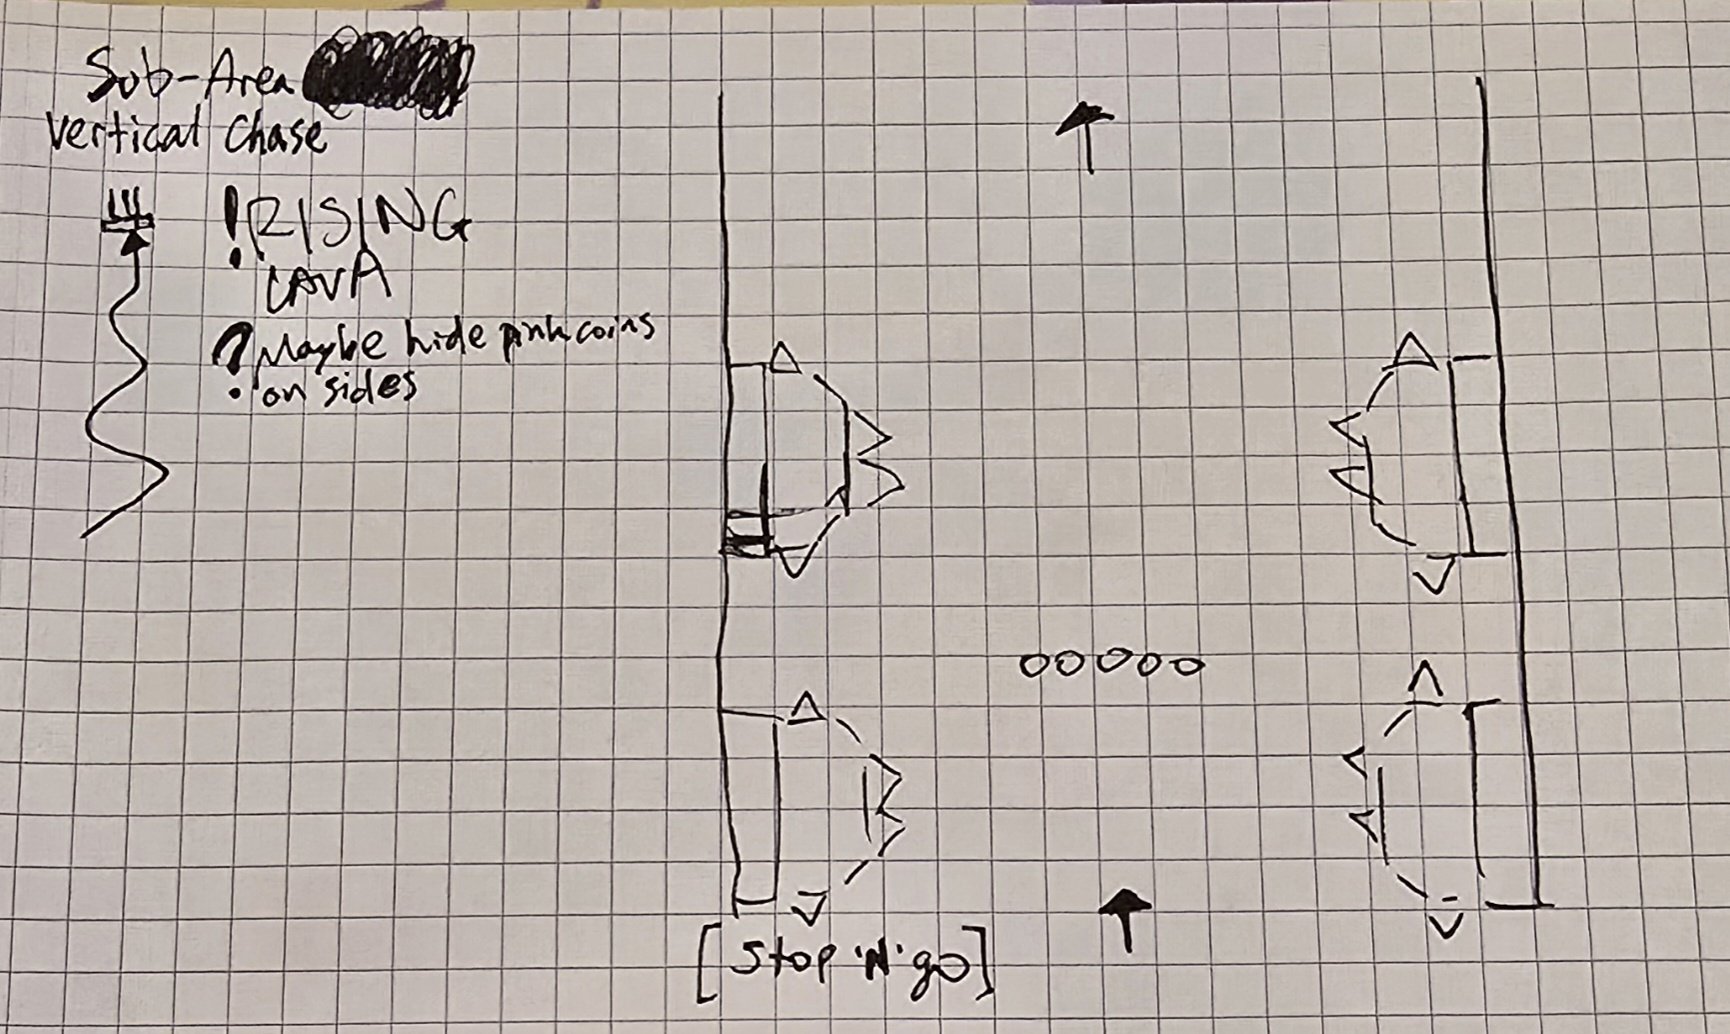 Sub-Area
Vertical Chase
! RISING
LAVA
? Maybe hide pink coins
on sides
[Stop 'N' go]